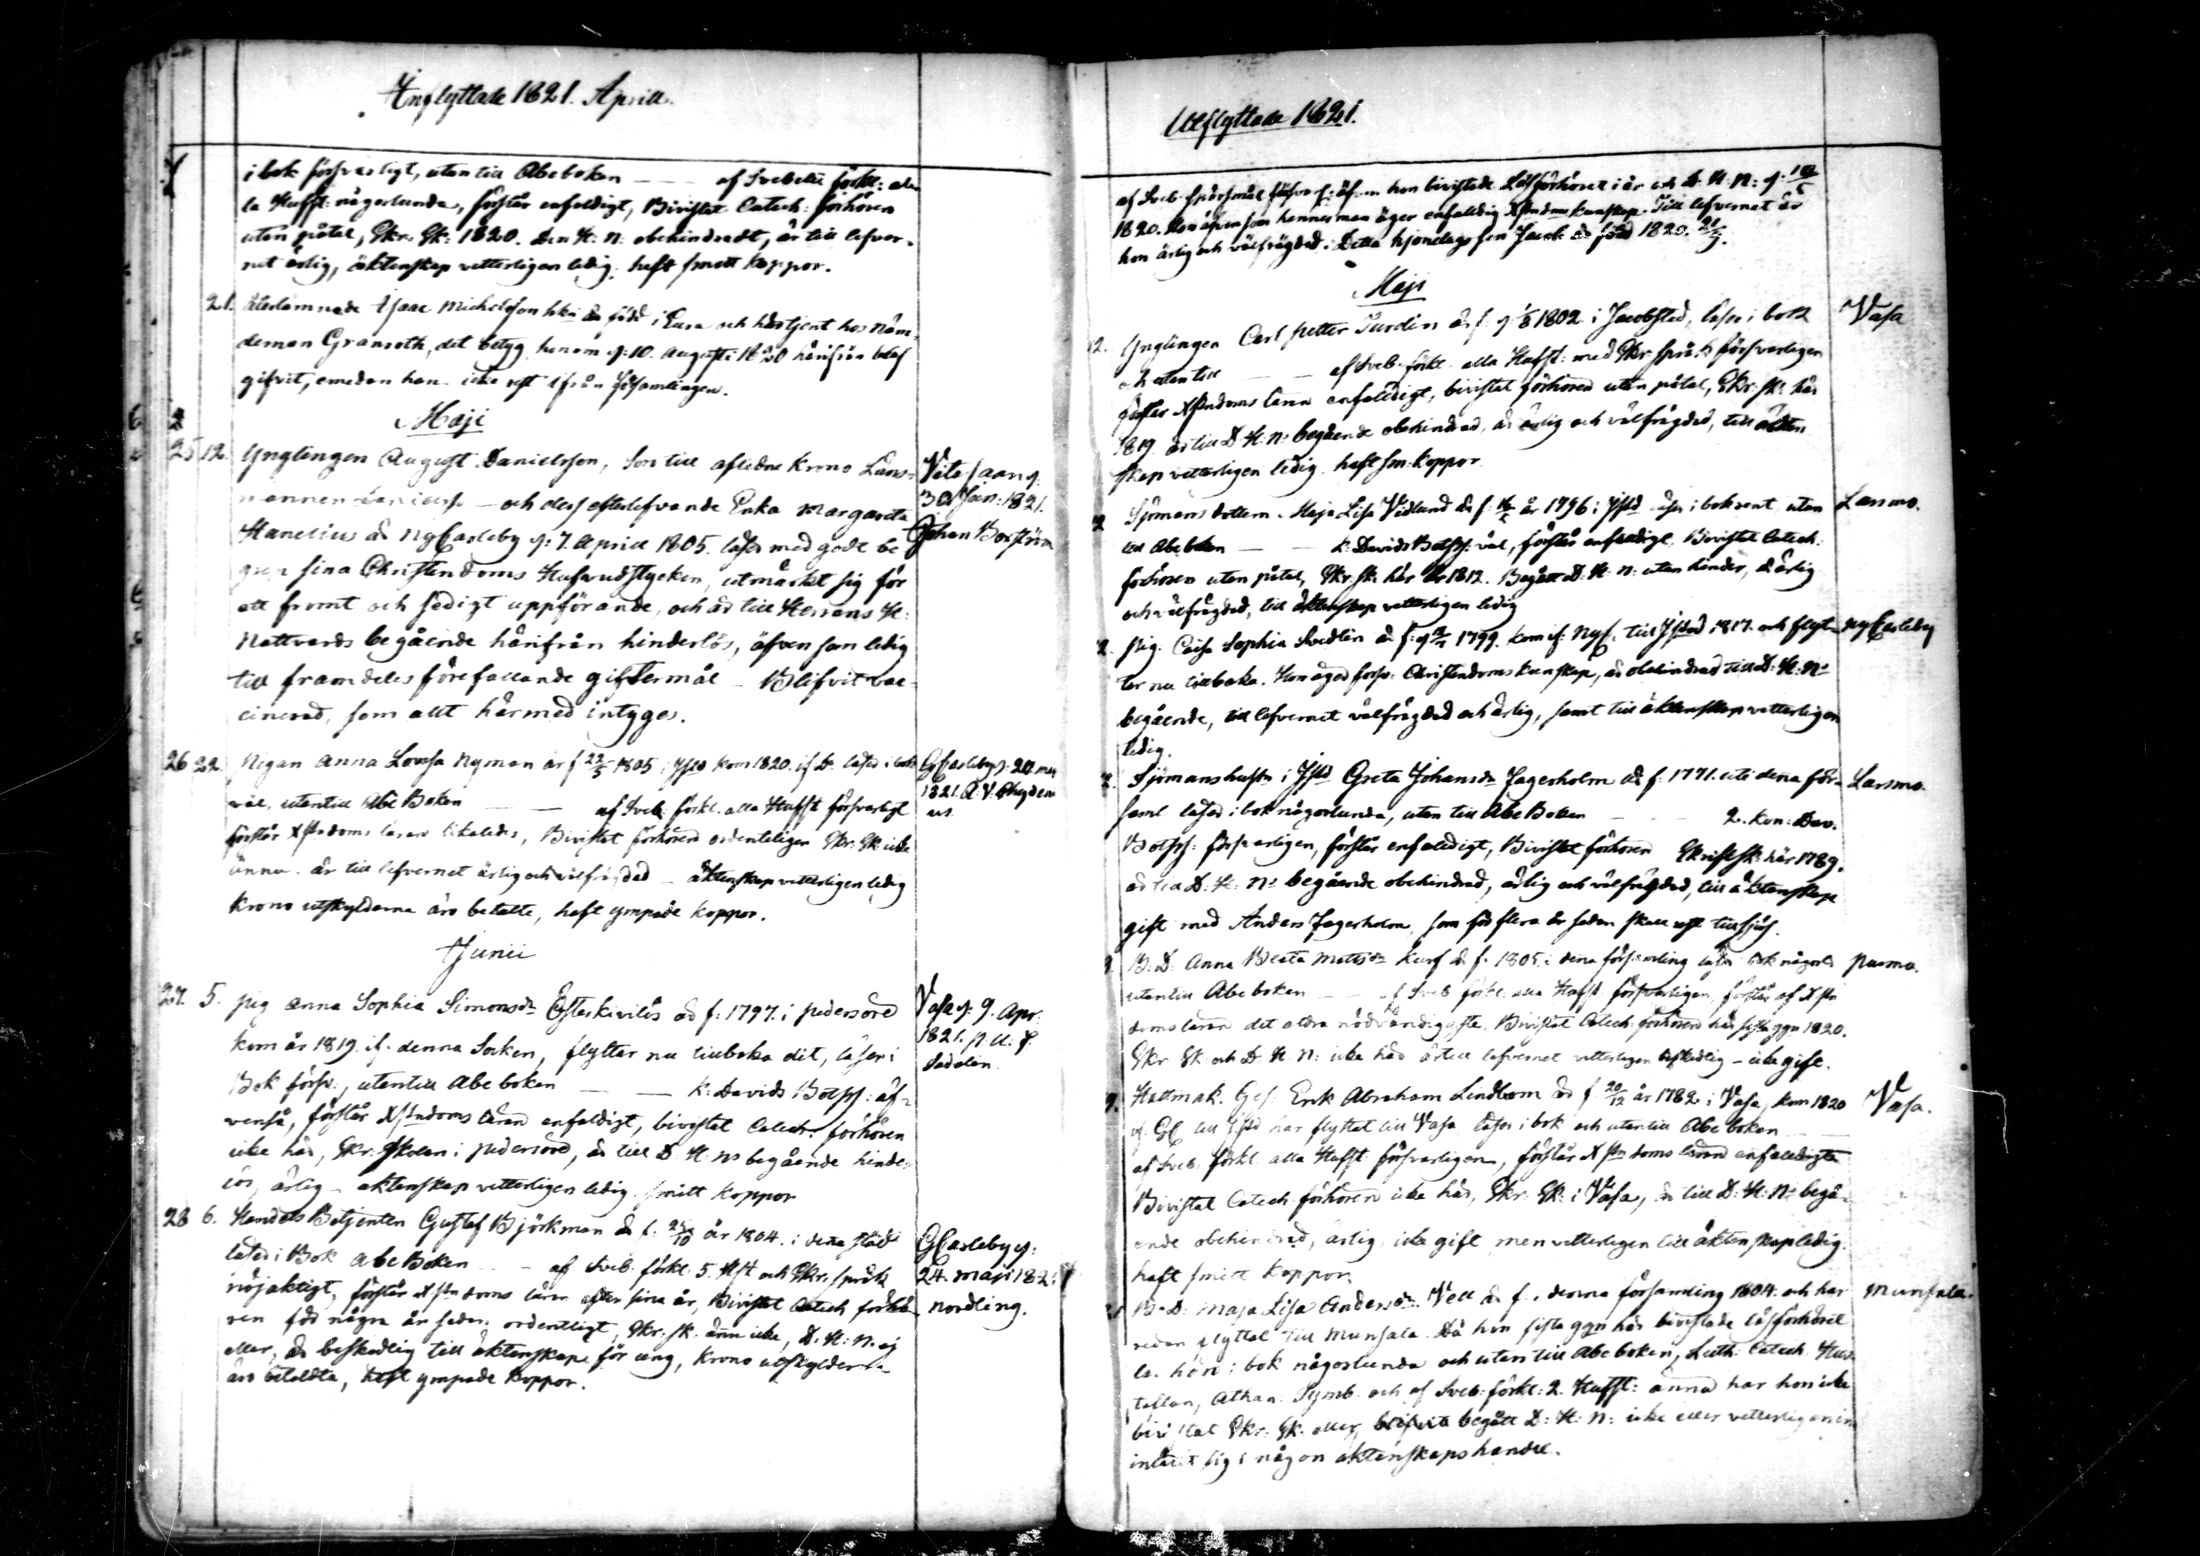 Inflyttade 1821. Aprill.
i bok försvarligt, utan till Abeboken — — af Svebelii förkl: alla
Hufst: någorlunda, förstår enfaldigt, Bivistat Catech: förhören
utan påtal, Skr. Sk: 1820. Den H: N: obehindradt, är till lefver-
net ärlig, äktenskap vetterligen ledig. haft smitt koppor.
21. återlämnade Isaac Michelsson född i Eura och här tjent hos Näm-
deman Granroth, det betyg honom d: 10. Augusti 1820 härifrån blef
gifvit, emedan han icke rest ifrån församlingen.
Maji
25 12. Ynglingen August Danielsson, Son till aflidne Krono Läns-
mannen Daniels. — och dess efterlefvande Enka Margareta
Hanelius är NyCarleby d: 7. Aprill 1805. läser med godt be-
grep sina Christendoms Hufvudstycken, utmärkt sig för
ett fromt och sedigt uppförande, och är till Herrans H:
Nattvards begående härifrån hinderlös, äfven som ledig
till framdeles förefallande giftermål — Blifvit vac-
cinerad, som allt härmed intyges.
Vetesaari d:
30 Jan: 1821.
Johan Boström
26 22. Pigan Anna Lovisa Nyman är f 22/5 1805 i Jstd kom 1820. if D. läser i bok
väl, utantill Abe Boken — — af Sveb. förkl. alla Hufst försvarligt
förstår Xstndoms läran likaledes, Bivistat förhören ordentligen Skr. Sk icke
ännu. är till lefvernet ärlig och välfrägdad — äktenskap vetterligen ledig
Krono utskylderna äro betalte, haft ympade koppor.
GCarleby d: 20 maj
1821. A. V.
Junii
27. 5. Pig Anna Sophia Simonsdr är f: 1797. i Pedersöre
kom år 1819. if. denna Socken, flyttar nu tillbaka dit, läser i
Bok försv:, utantill Abeboken — — K: Davids Botps: äf-
venså, förstår Xstndoms läran enfaldigt, bivistat Catech: förhören
icke här, Skr. Skolan i Pedersöre, är till D: H: Ns begående hinder-
lös, ärlig — äktenskap vetterligen ledig. smitt koppor
Vasa d: 9. Apr:
1821.
28 6. Handels Betjenten Gustaf Björkman är f: 25/10 år 1804. i denna stad
läser i Bok Abe Boken — - af Sveb. förkl: 5. Hst och Skr. språk
nöjaktigt, förstår Xstndoms läran efter sina år, Bivistat Catech förhö-
ren för några år sedan ordentligt, Skr. Sk. ännu icke, D: H: N. ej
eller, är beskedlig till äktenskap för ung, Krono utskylderna
äro betaldta, haft ympade koppor.
GCarleby d:
24. maji 1821
Nordling.
Utflyttade 1821.
af Sveb. spörsmål hon bivistade Läsförhöret i år och D. H. N: d:
1820. hon äger enfaldig Xstndoms kunskap. Till lefvernet är
hon ärlig och välfrägdad. Detta hjonelags son Jacob är född 1820.
Maji
12. Ynglingen Carl Petter Turdin är f: d: 1/8 1802. i Jacobstad, läser i bok
och utantill — — af Sveb. förkl. alla Hufst: med Skr. språk försvarligen
förstår Xstndoms läran enfaldigt, bivistat förhören utan påtal, Skr. Sk: här
1819. är till D: H: Ns begående obehindrad, är ärlig och välfrägdad, till äkten
skap vetterligen ledig. haft sm: koppor
Vasa
12 Sjömans dottern Maja Lisa Vidlund är f: år 1796 i Jstd läser i bok rent, utan
till Abeboken — — K: Davids Botps: väl, förstår enfaldigt. Bivistat Catech:
förhören utan påtal, Skr. Sk: här år 1812. Begått D: H: N: utan hinder, är ärlig
och välfrägdad, till äktenskap vetterligen ledig
Larsmo.
2. Pig. Caisa Sophia Svedlin är f: 1799. kom if: Nyc. till Jstad 1817. och flyt-
tar nu tillbaka. Hon äger försv: Christendoms kunskap, är obehindrad till D: H: Ns
begående, till lefvernet välfrägdad och ärlig, samt till äktenskap vetterligen
ledig.
NyCarleby
Sjömanshustrn i Jstd Greta Johansdr Jagerholm är f: 1771. uti dena för-
saml läser i bok någorlunda, utan till Abe Boken — — 2. Kon: Dav.
Botps: försvarligen, förstår enfaldigt, Bivistat förhören Skrift sk: här 1789.
är till D: H: Ns begående obehindrad, ärlig och välfrägdad, till äktenskap
gift med Anders Jagerholm, som för flera år sedan skall rest till sjös.
Larsmo.
B: D: Anna Beata Mattsdr Kurf är f. 1805. i dena församling läser i bok någorl.
utantill Abeboken — — af Sveb förkl. alla Hufst försvarligen, förstår af Xstn
doms läran det aldra nödvändigaste. Bivistat Catech: förhören här sista ggn 1820.
Skr Sk. och D: H: N: icke här är till lefvernet vetterligen beskedlig — icke gift.
Purmo.
9. Hattmak. Ges: Erik Abraham Lindbom är f 20/12 år 1782 i Vasa, kom 1820
if. GC till Jstd har flyttat till Vasa, läser i bok och utantill Abe boken — —
af Sveb. förkl. alla Hufst försvarligen, förstår Xstn doms läran enfaldigt
Bivistat Catech. förhören icke här, Skr. Sk. i Vasa, är till D: H: Ns begå-
ende obehindrad, ärlig, icke gift men vetterligen till äktenskap ledig.
haft smitt koppor.
Vasa.
B. D. Maja Lisa Andersdr Vell är f. i denna församling 1804. och har
redan flyttat till Munsala. Då hon sista ggn här bivistade läsförhöret
läs hon i bok någorlunda och utan till Abe boken, Luth: Catech. Hus-
taflan, Athan. Symb. och af Sveb: förkl: 2. Hufst: ännu har hon icke
bivistat Skr. Sk. eller begått D: H: N: icke eller vetterligen
inlåtit sig i någon äktenskapshandel.
Munsala.